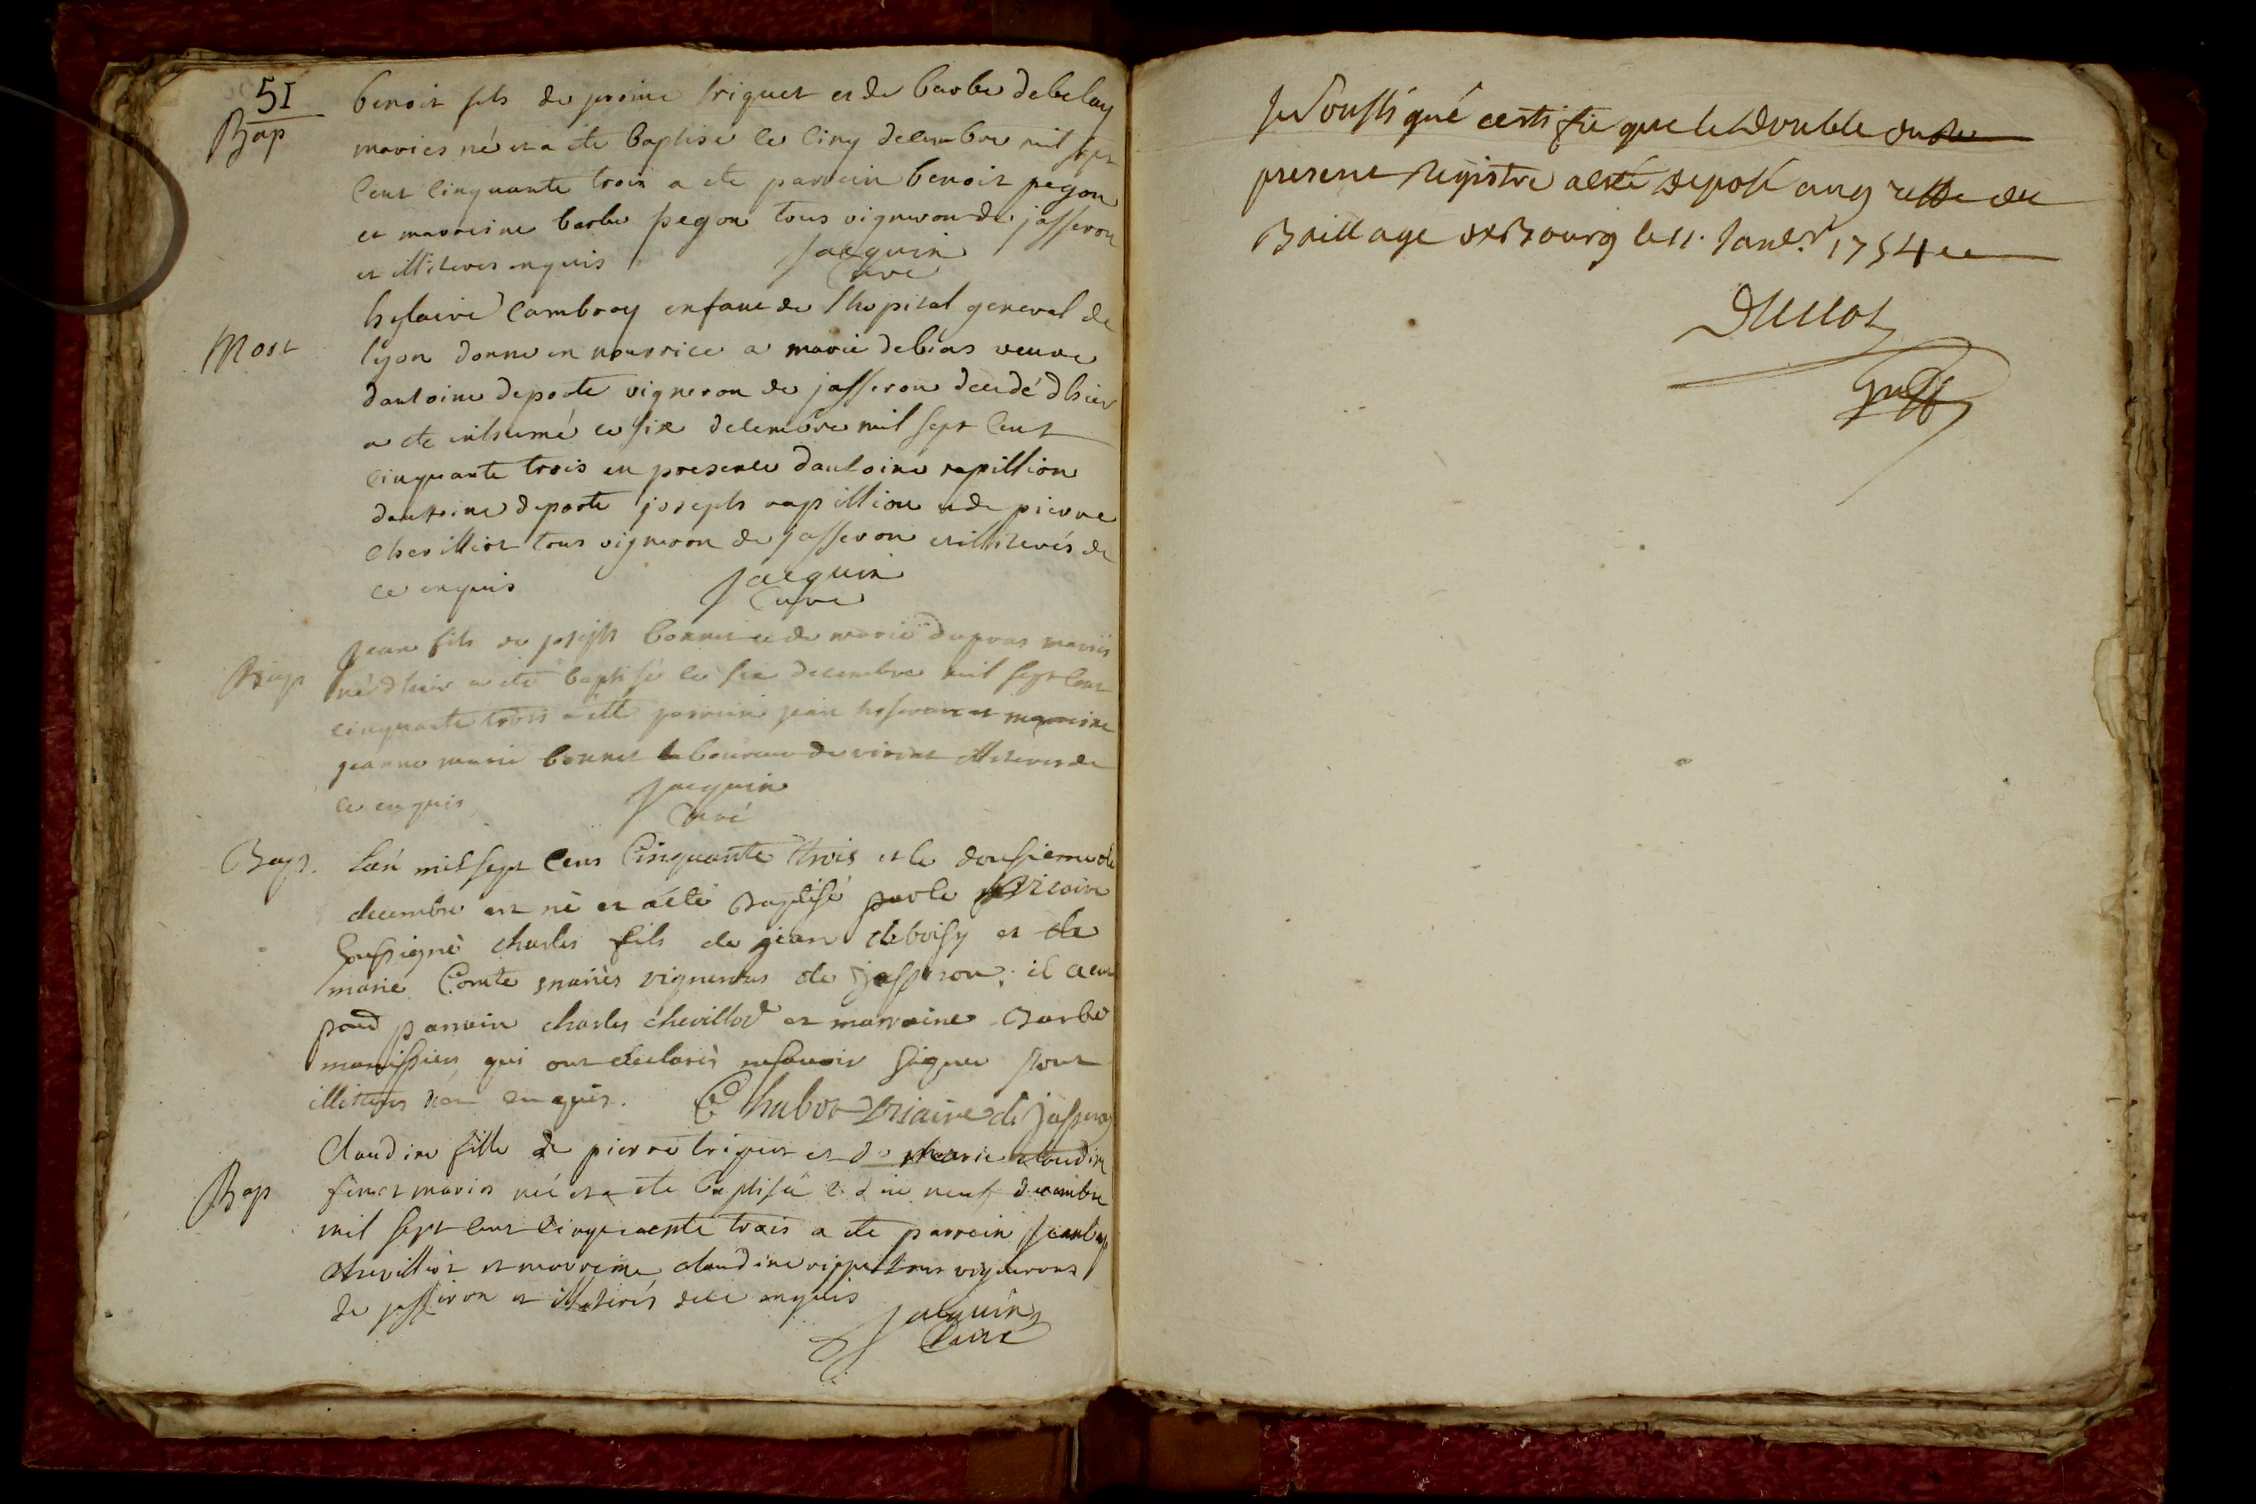 51
Bap
benoit fils de  triquet et de barbe debelay
maries né et a ete baptisé le cinq decembre mil sept
cent cinquante trois a ete parrein benoit pegon
et marreine barbe pegon tous vigneron de jasseron
et illiteres enquis Jacquin
curé
Mort
hylaire Cambray enfant de l'hopital general de
lyon donné en nourrice a marie debias veuve
dantoine deporte vigneron de jasseron decedé dhier
a ete inhumé ce six decembre mil sept cent
cinquante trois en presence dantoine rapillion
dantoine deporte joseph rapillion et de pierre
chevilliot tous vigneron de jasseron et illiterés de
ce enquis Jacquin
curé
Bap
jean fils de joseph bonnet et de marie dupras mariés
né dhier a eté baptisé le six decembre mil sept cent
cinquante trois a été parrein jean et marreine
jeanne marie bonnet laboureur de illiteres de
ce enquis Jacquin
curé
Bap.
L'an mil sept cent cinquante trois et le dousieme de
decembre est né et a été baptisé par le vicaire
soussigné charles fils de jean deboisy et de
marie Comte mariés vignerons de jasseron; il a eu
pour parrain charles chevillod et marraine Barbe
 qui ont declarés ne savoir signer pour
illitteres de ce enquis. Chabot Vicaire de jasseron
Bap
Claudine fille de pierre triquet et de marie claudine
 maries née et a ete baptisée le dix neuf decembre
mil sept cent cinquante trois a ete parrein 
chevilliot et marreine claudine tous vignerons
de jasseron et illiterés de ce enquis Jacquin
Curé
Je soussigné certifie que le double du
present Registre a esté deposé au greffe du
Bailliage de Bourg le 11. Janer. 1754

Greff